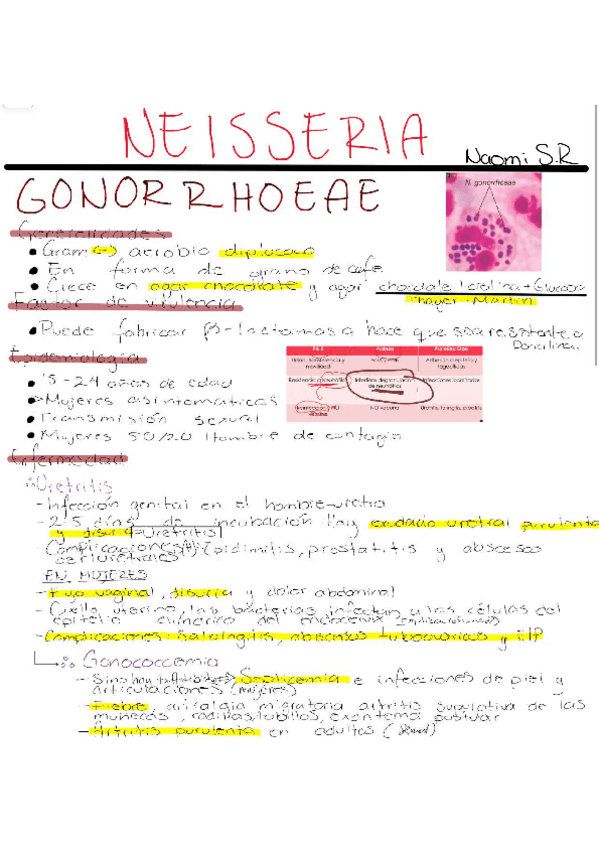 NEISSERIA
Naomi S.R
GONORRHOEAE
N. gonorrhoeae
Generalidades
• Gram (-) aerobio diplococo
• En forma de grano de cafe
• Crece en agar chocolate y agar chocolate + colistina + Glucosa
Thayer-Martin
Factor de virulencia
• Puede fabricar β-lactamasa hace que sea resistente a
Epidemiología
• 15-24 años de edad
• Mujeres asintomaticas
• Transmisión sexual
• Mujeres 50/20 Hombre de contagio
NO vacuna
Enfermedad
Uretritis
- Infección genital en el hombre-uretra
- 2-5 días de incubación Hay exudado uretral purulento
y disuria = Uretritis
Complicaciones Epididimitis, prostatitis y abscesos
periuretrales
EN MUJERES
- Flujo vaginal, disuria y dolor abdominal
- Cuello uterino, las bacterias infectan a las células del
epitelio cilíndrico del endocervix
- Complicaciones: Salpingitis, abscesos tuboovaricos y EIP
Gonococcemia
- Si no hay tx Septicemia e infecciones de piel y
articulaciones (mujeres)
- Fiebre, artralgia migratoria artritis supurativa de las
muñecas, rodillas, tobillos, exantema pustular
- Artritis purulenta en adultos